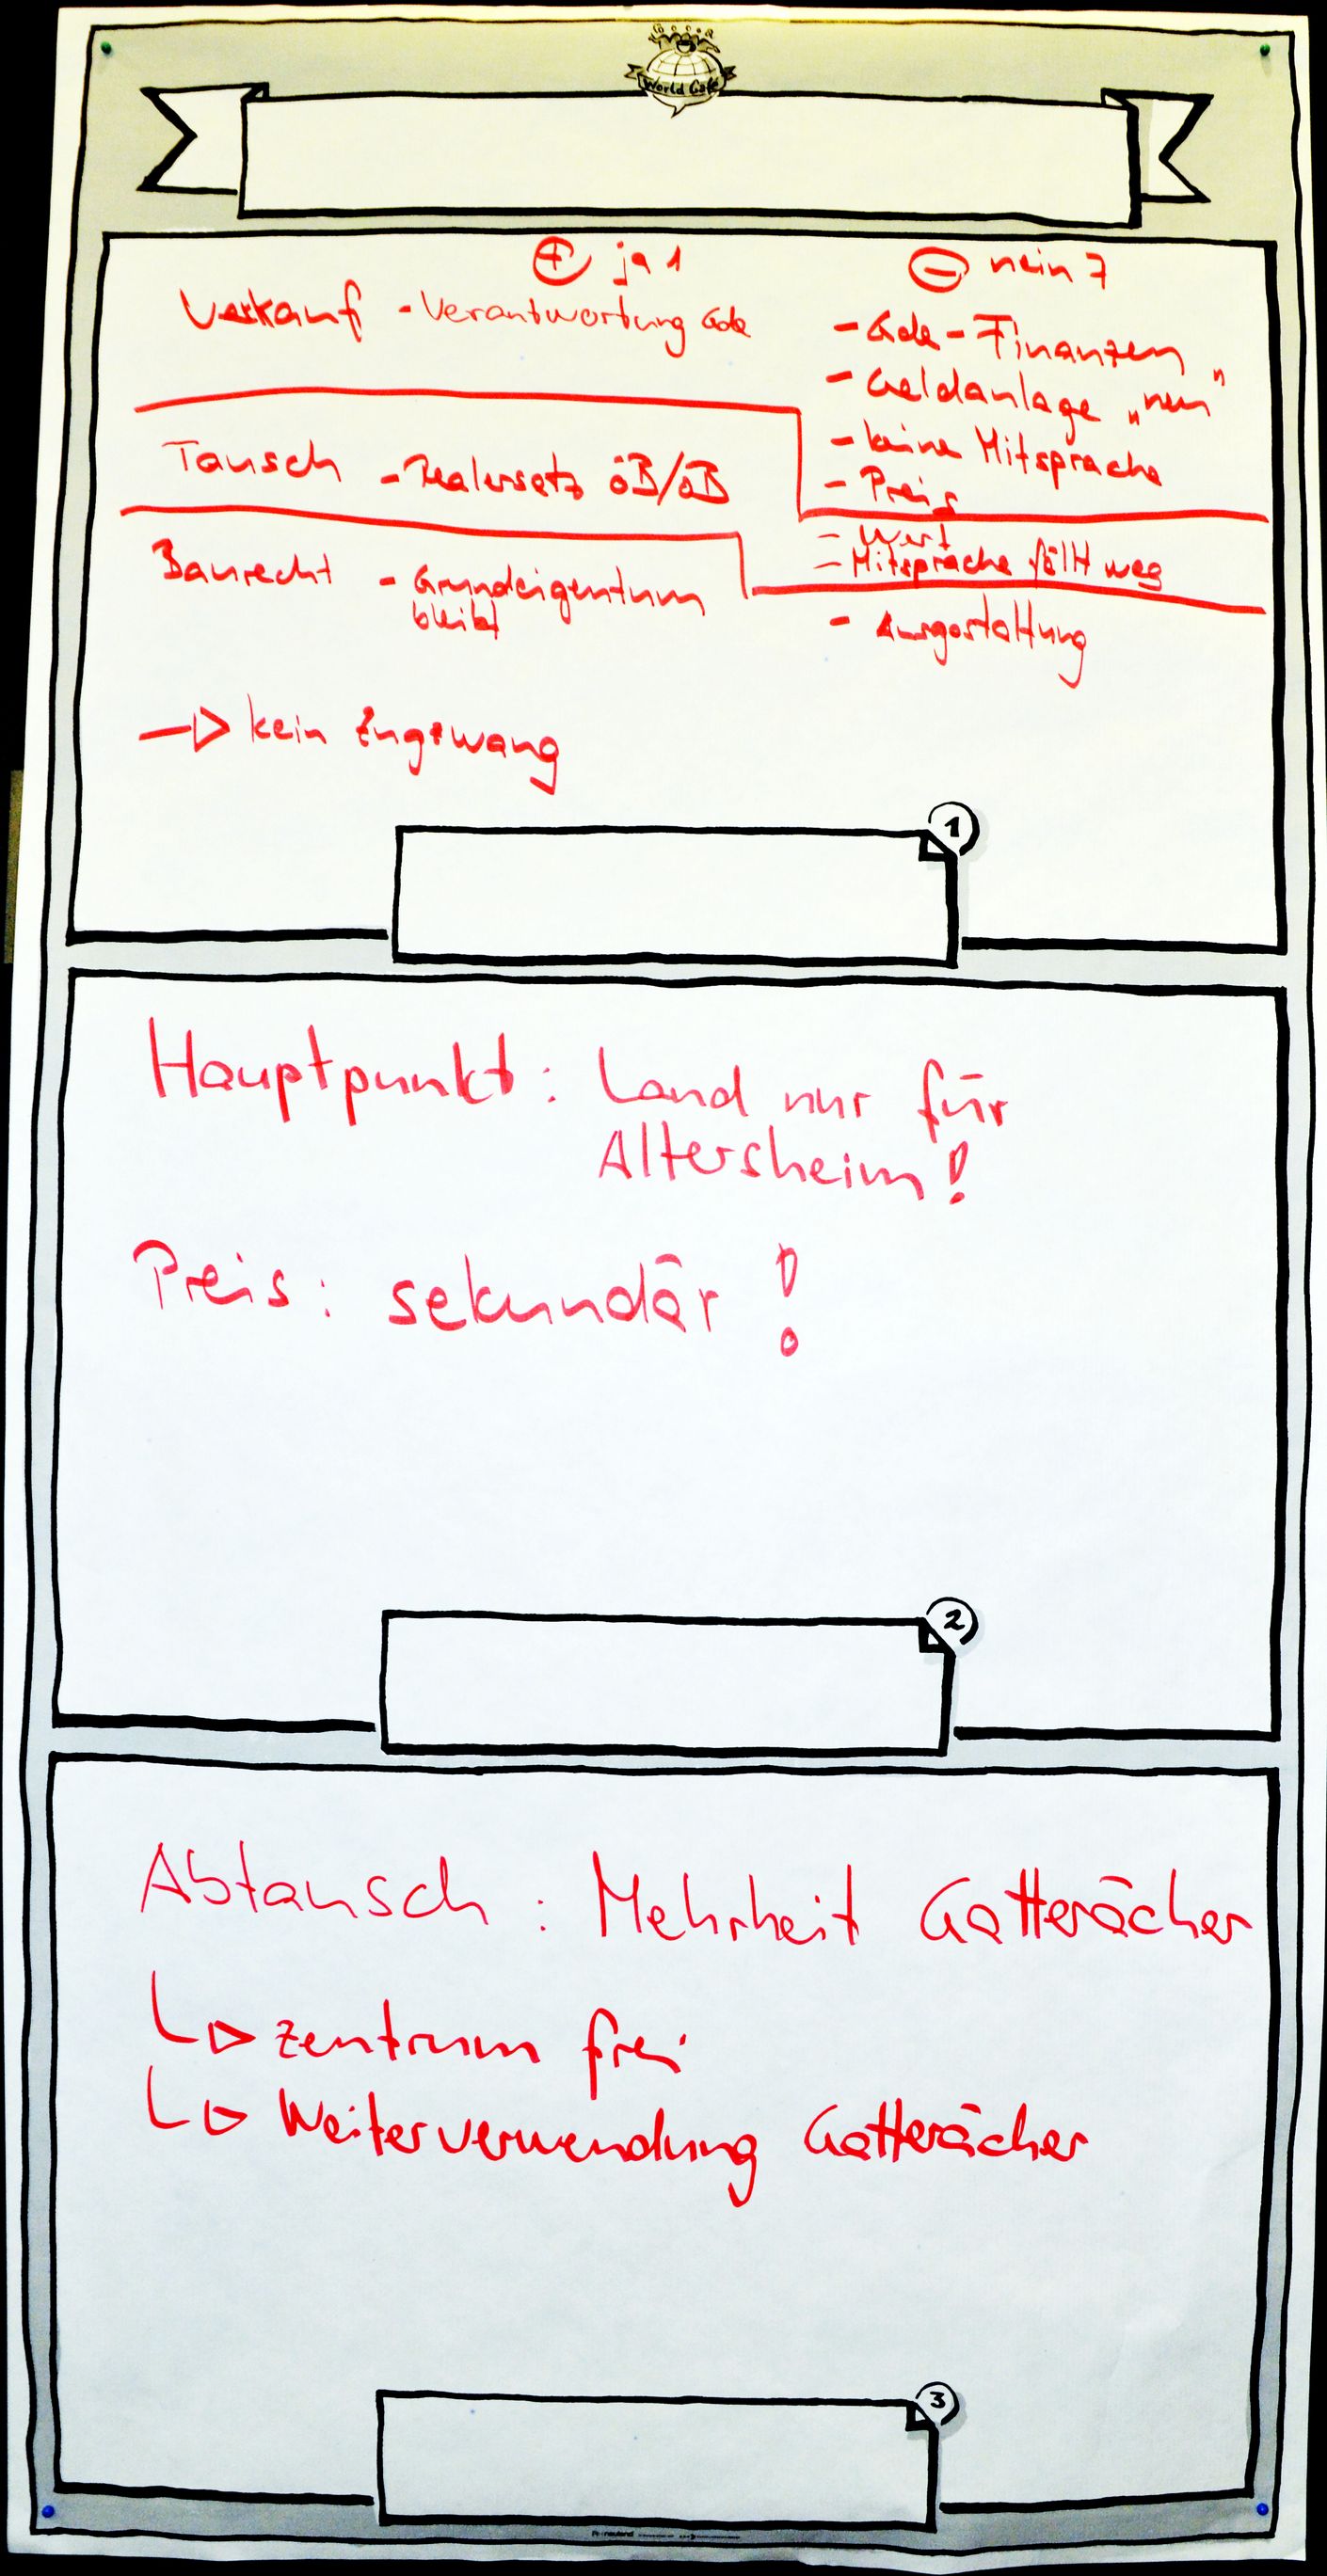 World Café
⊕ ja 1
⊖ nein 7
Verkauf - Verantwortung Gde
- Gde-Finanzen
- Geldanlage „neu"
- keine Mitsprache
- Preis
Tausch - Realersatz öB/öB
- Wert
- Mitsprache fällt weg
Baurecht - Grundeigentum
bleibt
- Ausgestaltung
→ kein Zugzwang
1
Hauptpunkt: Land nur für
Altersheim!
Preis: sekundär!
2
Abtausch: Mehrheit Gatterächer
↳ Zentrum frei
↳ Weiterverwendung Gatterächer
3
neuland